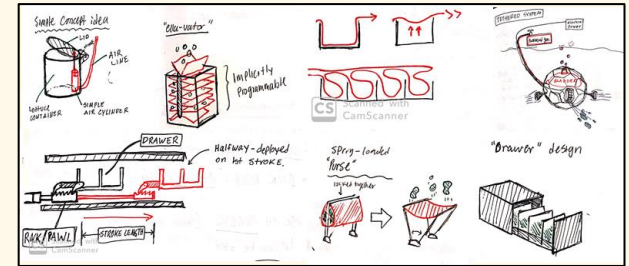 Simple Concept idea
LID
AIR
LINE
CONTAINER
SIMPLE
AIR CYLINDER
"ela-vator"
Implicitly
Programmable
CS Scanned with
CamScanner
TETHERED SYSTEM
DRAWER
Halfway-deployed
on 1st STROKE.
RAK/PAWL
STROKE LENGTH
CamScanner
Spring-loaded
"Purse"
"Drawer" design